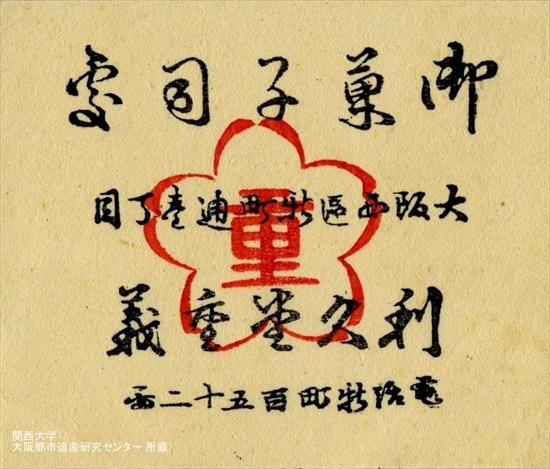 御菓子司處
大阪西區新町通壹丁目
重
利久堂重義
電話新町百五十二番
関西大学
大阪都市遺産研究センター 所蔵